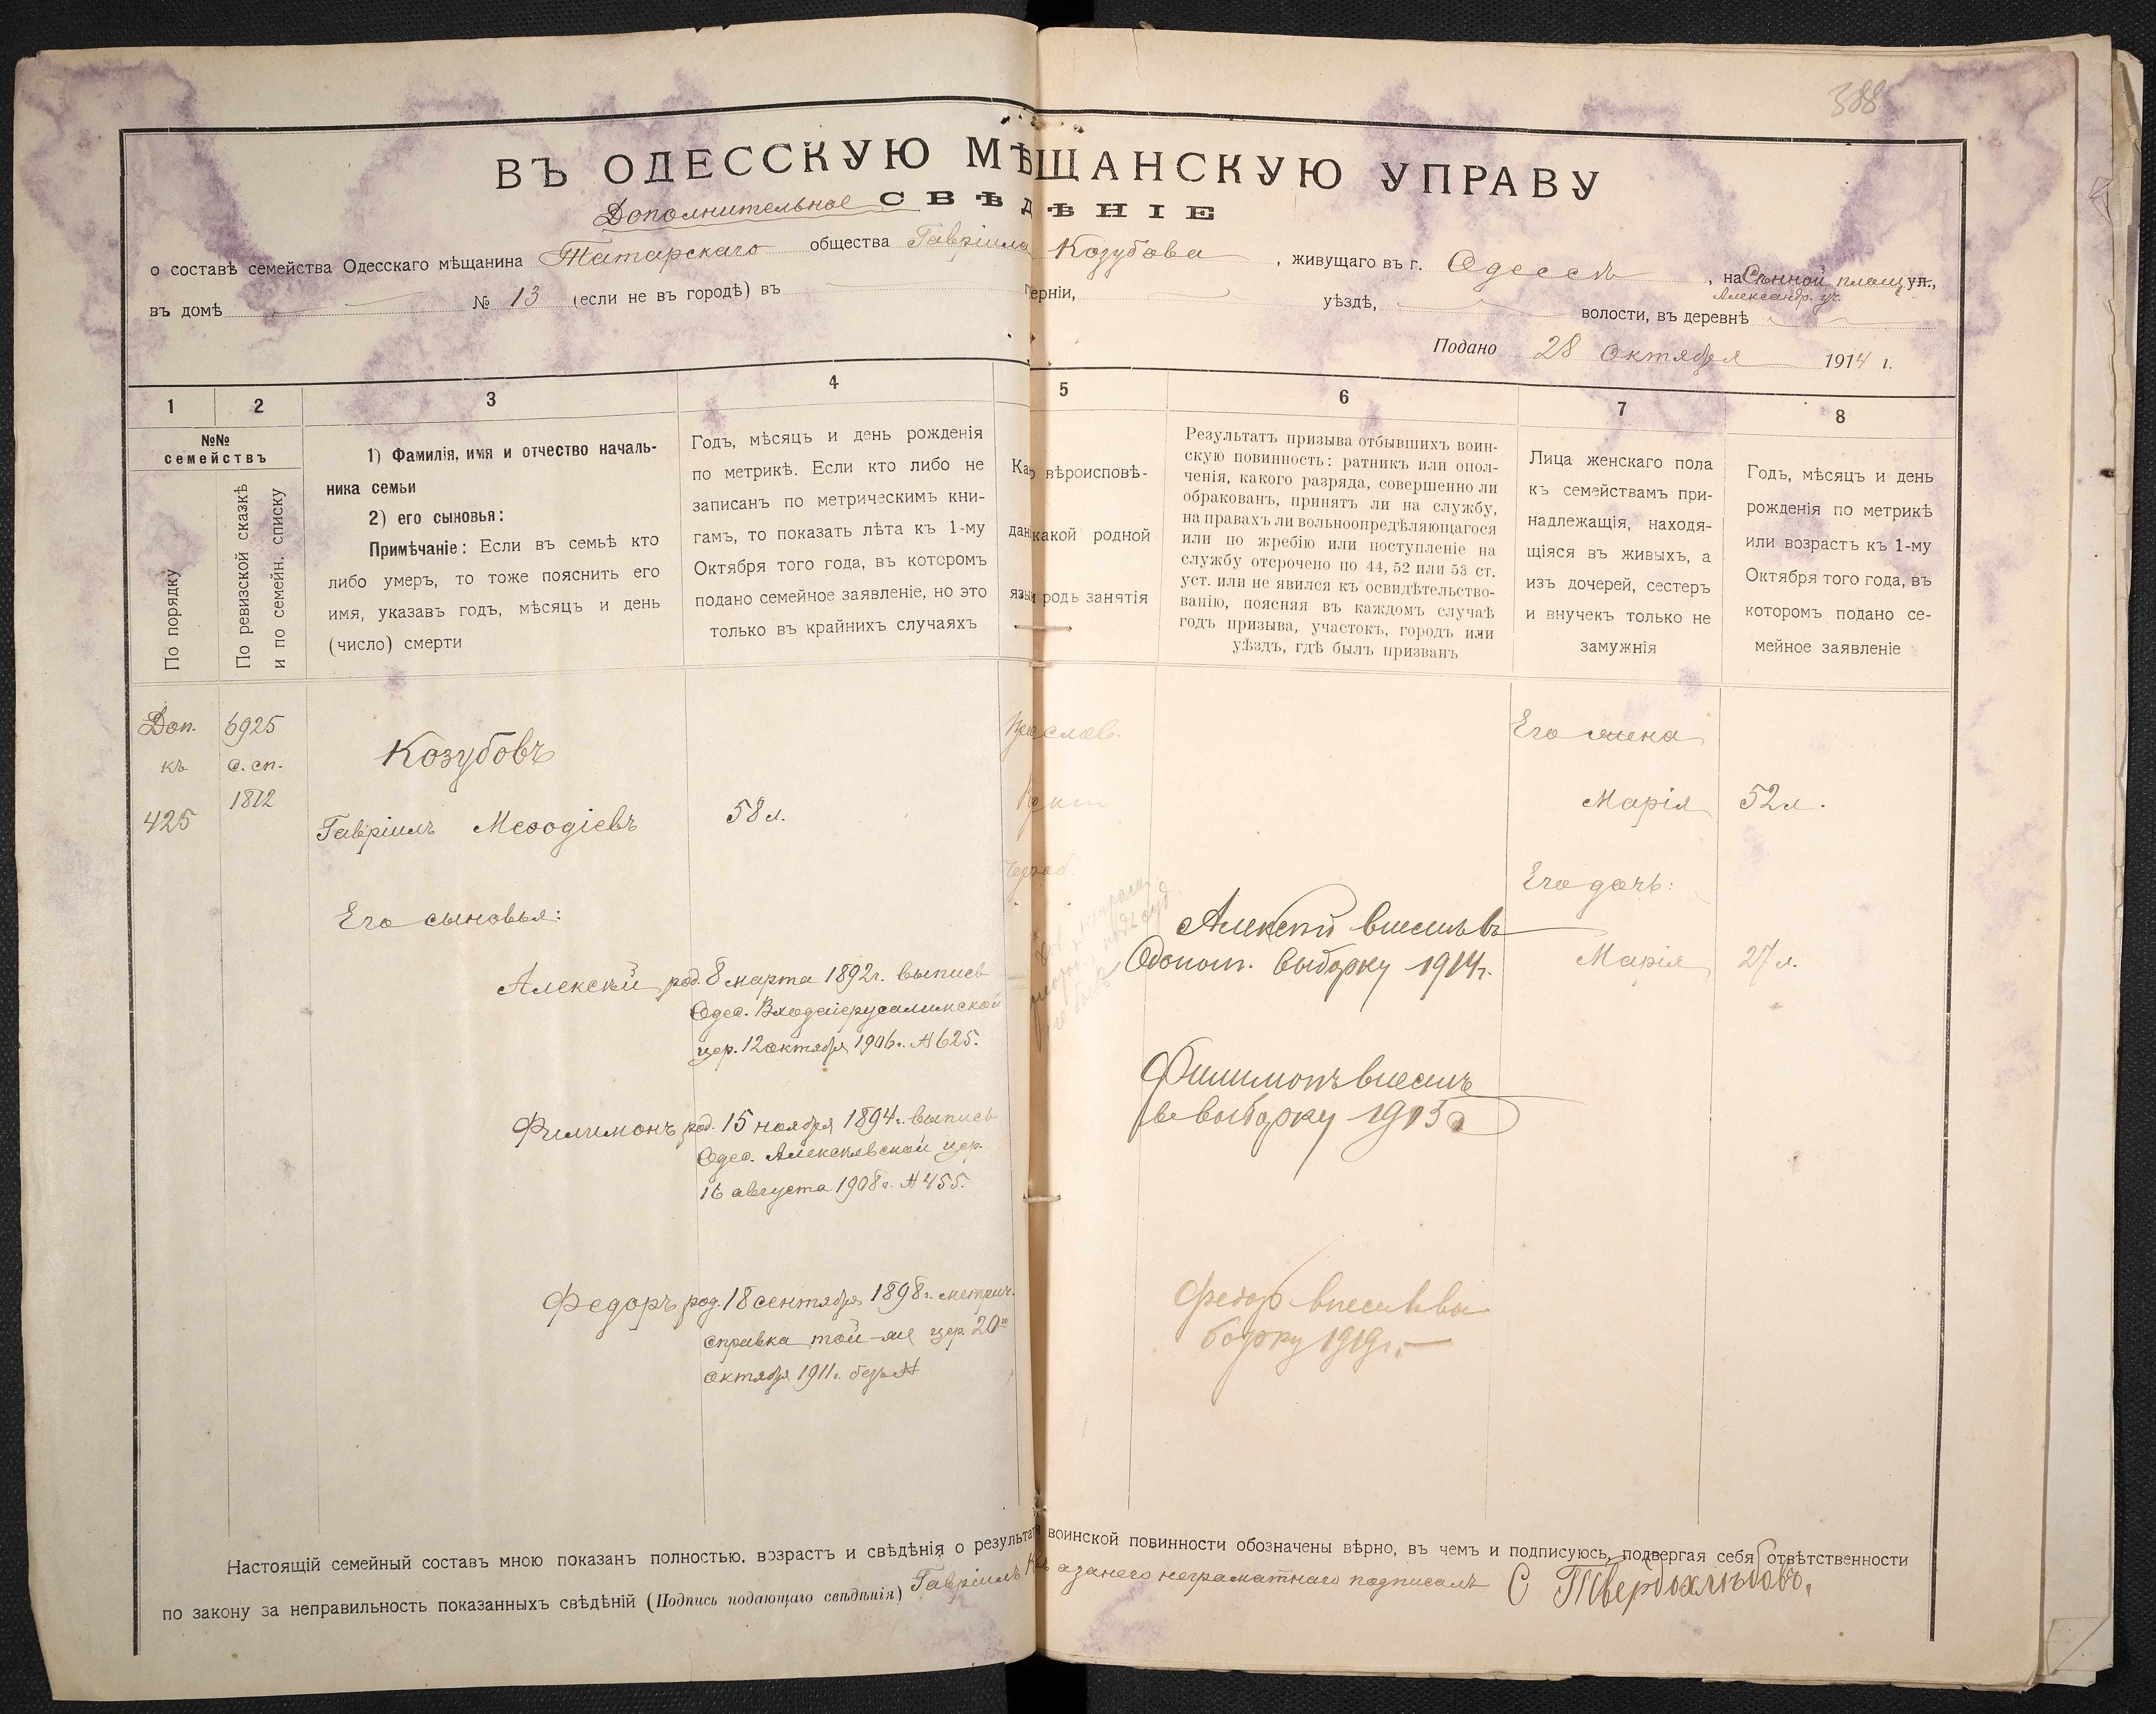 388
ВЪ ОДЕССКУЮ МѢЩАНСКУЮ УПРАВУ
Дополнительное СВѢДѢНІЕ
о составѣ семейства Одесскаго мѣщанина Татарскаго общества Гавріила Козубова, живущаго въ г. Одессѣ, на Сѣнной площ ул.,
Александр. уч.
въ домѣ № 13 (если не въ городѣ) въ губерніи, уѣздѣ, волости, въ деревнѣ
Подано 28 октября 1914 г.
1 2 3 4 5 6 7 8
№№ семействъ
По порядку
По ревизской сказкѣ
и по семейн. списку
1) Фамилія, имя и отчество началь-
ника семьи
2) его сыновья:
Примѣчаніе: Если въ семьѣ кто
либо умеръ, то тоже пояснить его
имя, указавъ годъ, мѣсяцъ и день
(число) смерти
Годъ, мѣсяцъ и день рожденія
по метрикѣ. Если кто либо не
записанъ по метрическимъ кни-
гамъ, то показать лѣта къ 1-му
Октября того года, въ которомъ
подано семейное заявленіе, но это
только въ крайнихъ случаяхъ
вѣроисповѣ-
какой родной
родъ занятія
Результатъ призыва отбывшихъ воин-
скую повинность: ратникъ или опол-
ченія, какого разряда, совершенно ли
обракованъ, принятъ ли на службу,
на правахъ ли вольноопредѣляющагося
или по жребію или поступленіе на
службу отсрочено по 44, 52 или 53 ст.
уст. или не явился къ освидѣтельство-
ванію, поясняя въ каждомъ случаѣ
годъ призыва, участокъ, городъ или
уѣздъ, гдѣ былъ призванъ
Лица женскаго пола
къ семействамъ при-
надлежащія, находя-
щіяся въ живыхъ, а
изъ дочерей, сестеръ
и внучекъ только не
замужнія
Годъ, мѣсяцъ и день
рожденія по метрикѣ
или возрастъ къ 1-му
Октября того года, въ
которомъ подано се-
мейное заявленіе
Доп.
къ
425
6925
с. сп.
1812
Козубовъ
Гавріилъ Меѳодіевъ 58 л.
Его сыновья:
Алексѣй род. 8 марта 1892 г. выпись
Одес. Входоіерусалимской
цер. 12 октября 1906 г. № 625.
Филимонъ род. 15 ноября 1894 г. выпись
Одес. Алексѣевской цер.
16 августа 1908 г. № 455.
Федоръ род. 18 сентября 1898 г. метрич.
справка той-же цер. 20го
октября 1911 г. безъ №
Алексѣй внесенъ въ
выборку 1914 г.
Филимонъ внесенъ
въ выборку 1915 г
Федор внесенъ вы
борку 1919 г.
Его жена
Марія 52 л.
Его дочь:
Марія 27 л.
Настоящій семейный составъ мною показанъ полностью, возрастъ и свѣдѣнія о результатѣ воинской повинности обозначены вѣрно, въ чемъ и подписуюсь, подвергая себя отвѣтственности
по закону за неправильность показанныхъ свѣдѣній (Подпись подающаго свѣдѣнія) Гавріилъ неграматнаго подписалъ С Твердохлѣбовъ.